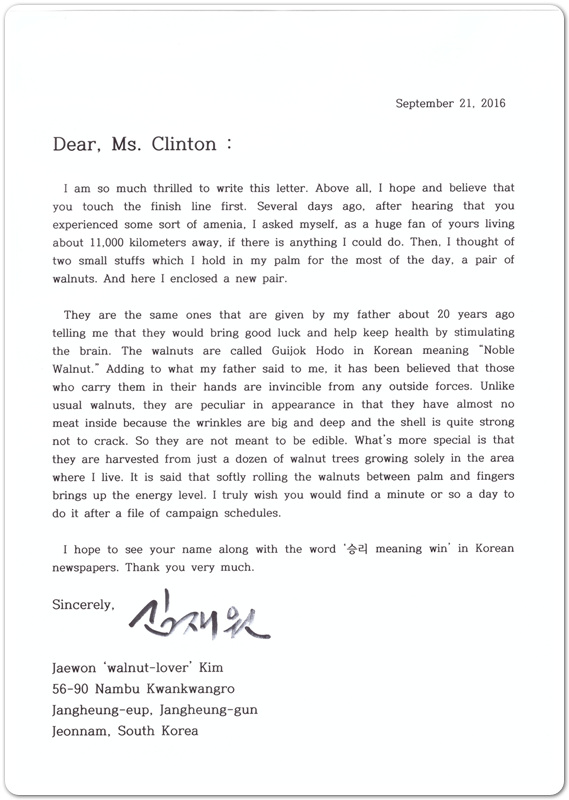 September 21, 2016
Dear, Ms. Clinton :
I am so much thrilled to write this letter. Above all, I hope and believe that
you touch the finish line first. Several days ago, after hearing that you
experienced some sort of amenia, I asked myself, as a huge fan of yours living
about 11,000 kilometers away, if there is anything I could do. Then, I thought of
two small stuffs which I hold in my palm for the most of the day, a pair of
walnuts. And here I enclosed a new pair.
They are the same ones that are given by my father about 20 years ago
telling me that they would bring good luck and help keep health by stimulating
the brain. The walnuts are called Guijok Hodo in Korean meaning “Noble
Walnut.” Adding to what my father said to me, it has been believed that those
who carry them in their hands are invincible from any outside forces. Unlike
usual walnuts, they are peculiar in appearance in that they have almost no
meat inside because the wrinkles are big and deep and the shell is quite strong
not to crack. So they are not meant to be edible. What's more special is that
they are harvested from just a dozen of walnut trees growing solely in the area
where I live. It is said that softly rolling the walnuts between palm and fingers
brings up the energy level. I truly wish you would find a minute or so a day to
do it after a file of campaign schedules.
I hope to see your name along with the word ‘승리 meaning win’ in Korean
newspapers. Thank you very much.
Sincerely, 김재원
Jaewon ‘walnut-lover’ Kim
56-90 Nambu Kwankwangro
Jangheung-eup, Jangheung-gun
Jeonnam, South Korea